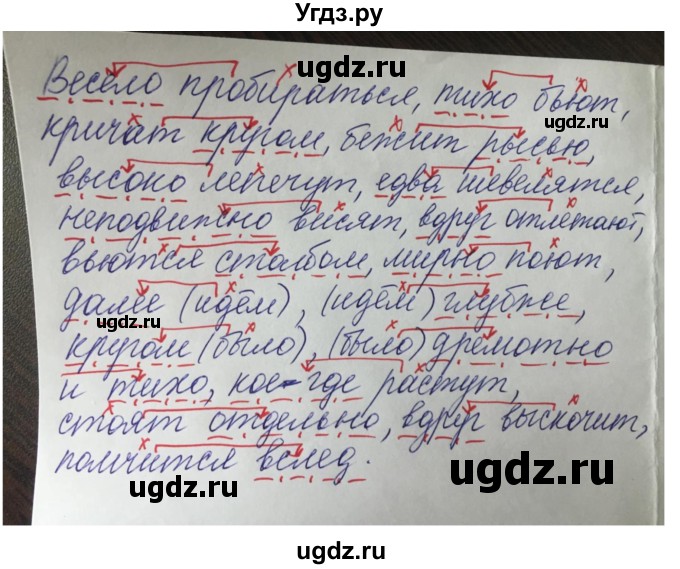 Угдз.ру
ugdz.ru
ugdz.ru
Весело пробираться, тихо бьют,
кричат кругом, бежит рысью,
высоко лепечут, едва шевелятся,
неподвижно висят, вдруг отлетают,
вьются столбом, мирно поют,
далее (идём), (идём) глубже,
ugdz.ru
ugdz.ru
кругом (было), (было) дремотно
и тихо, кое-где растут,
стоят отдельно, вдруг выскочит,
помчится вслед.
ugdz.ru
ugdz.ru
ugdz.ru